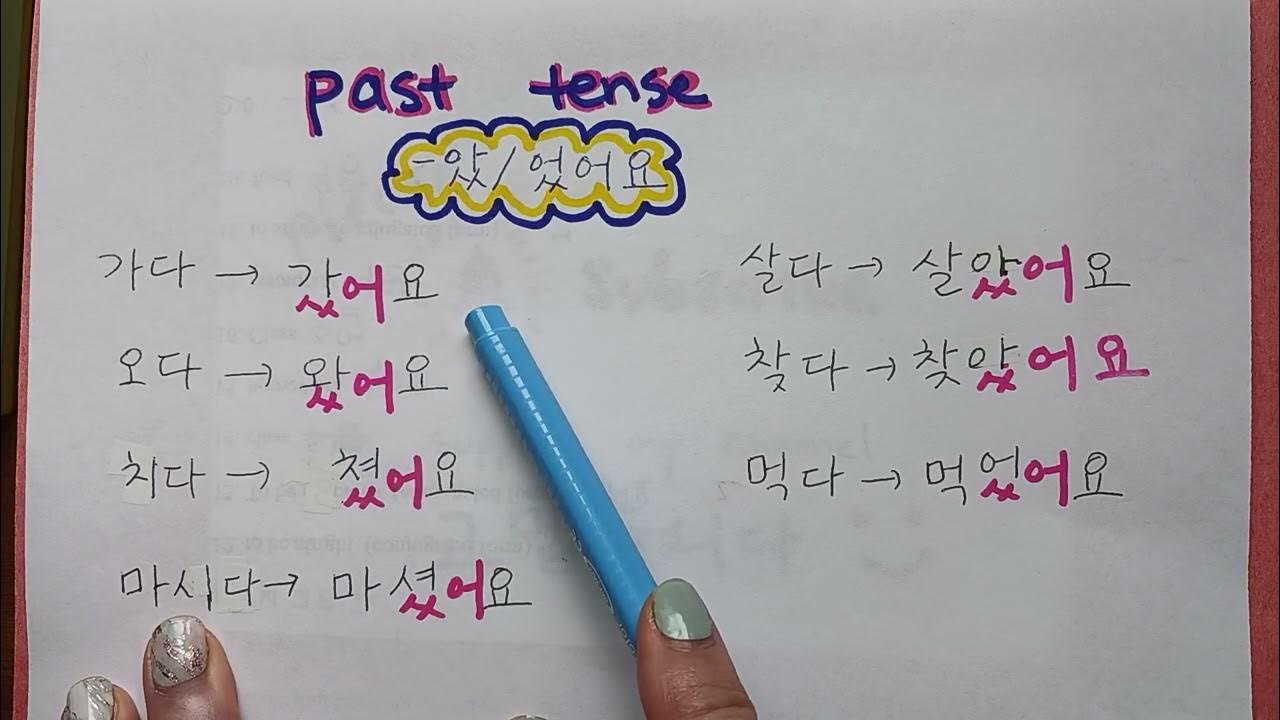 past tense
-았/었어요
가다 → 갔어요
오다 → 왔어요
치다 → 쳤어요
마시다 → 마셨어요
살다 → 살았어요
찾다 → 찾았어요
먹다 → 먹었어요